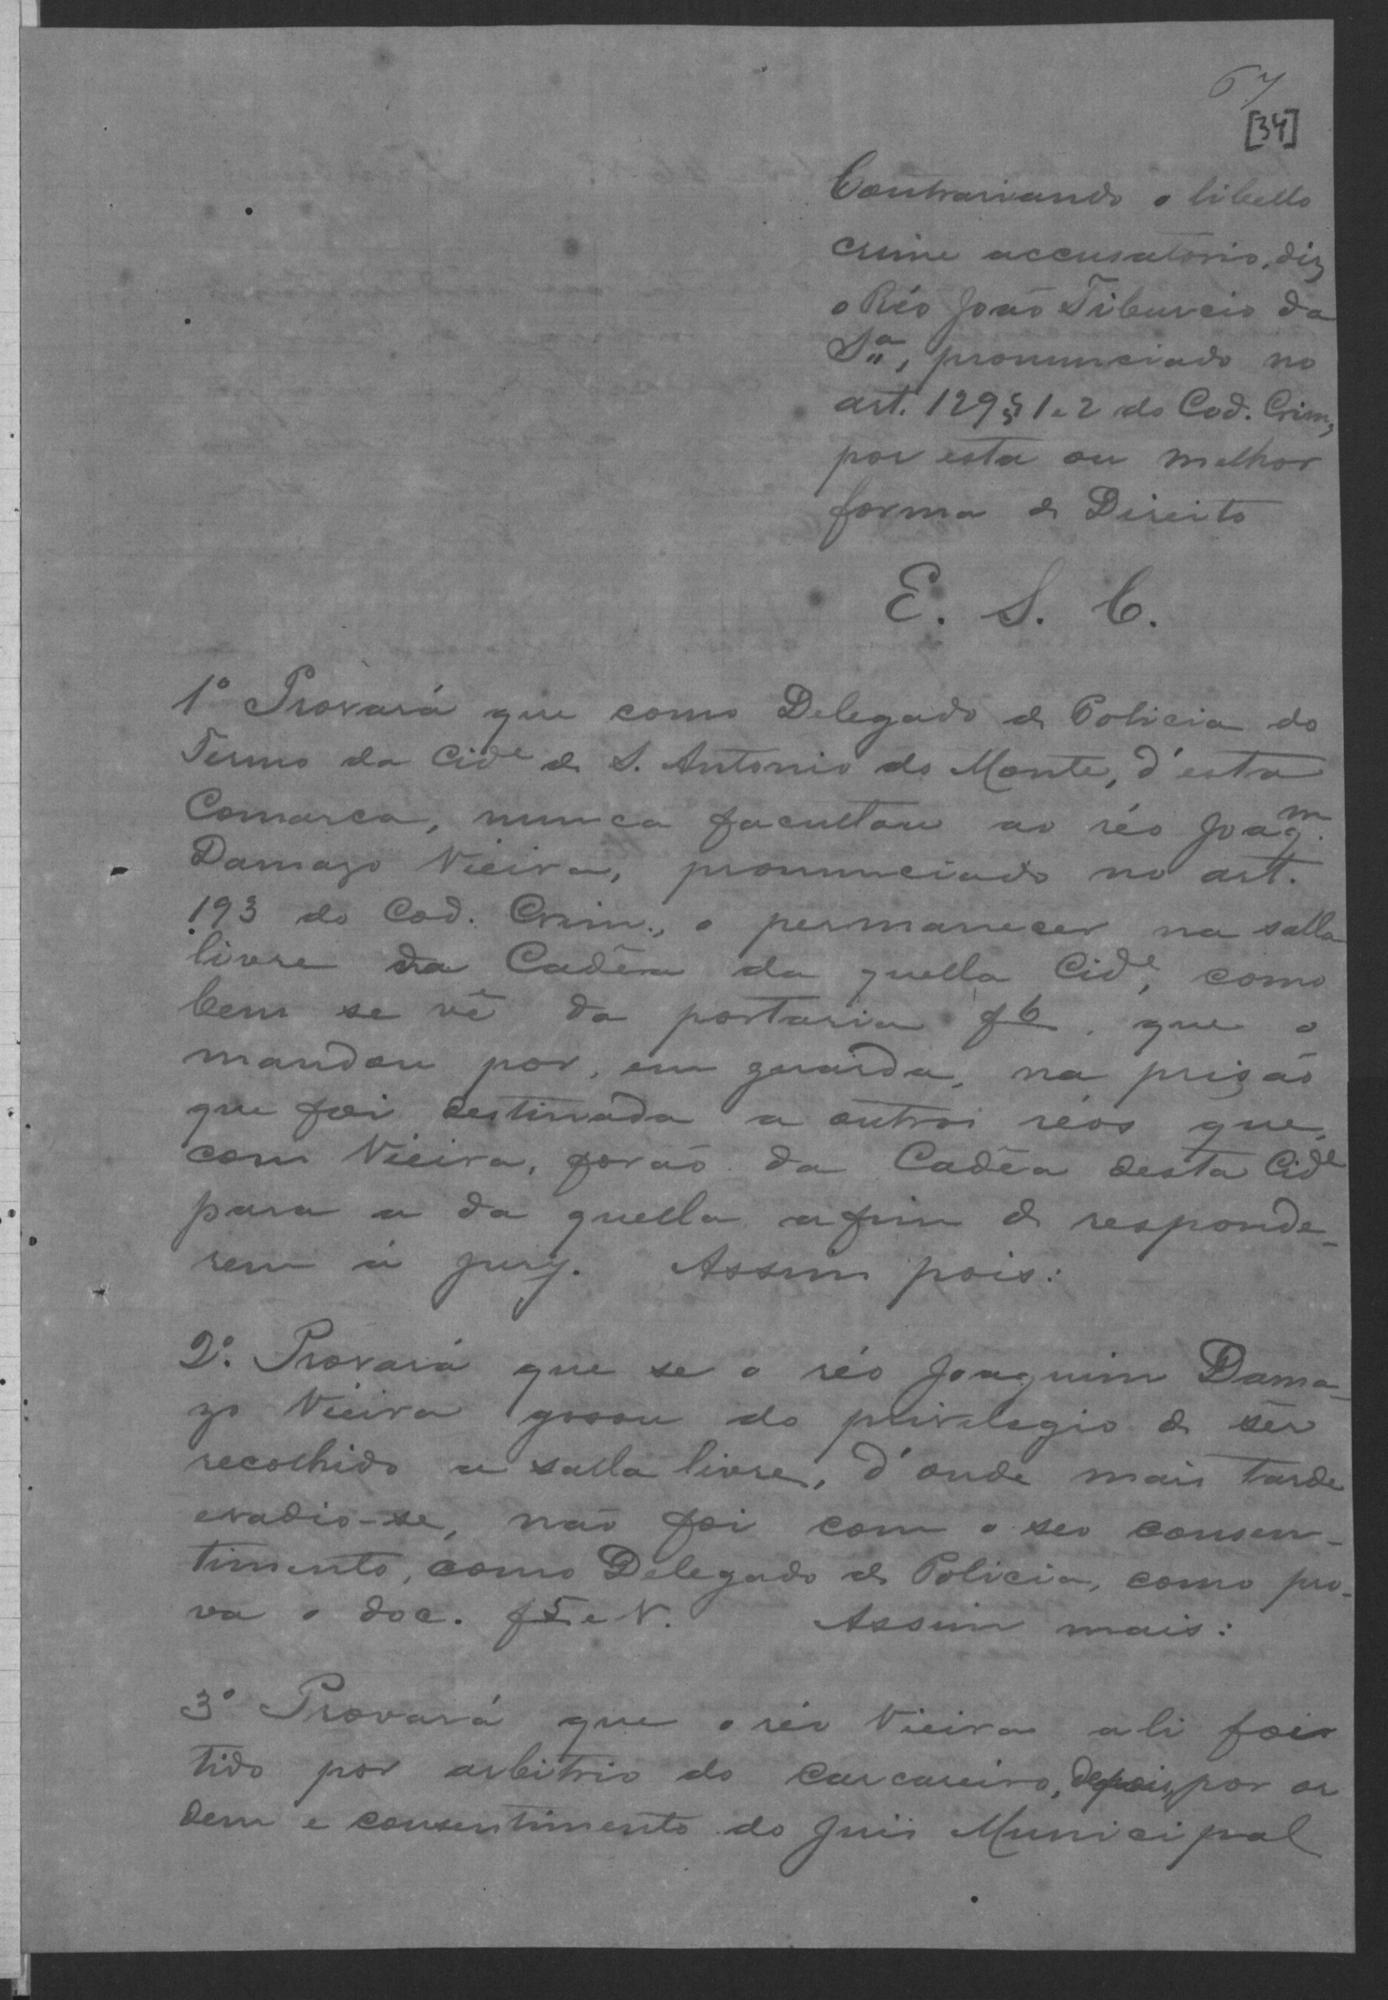 67
[34]
Contrariando o libello
crime accusatorio, diz
o Réo João Tiburcio da
Sª, pronunciado no
art. 129 § 1 e 2 do Cod. Crim,
por esta ou melhor
forma de Direito
E. S. C.
1º Provará que como Delegado de Policia do
Termo da Cidᵉ de S. Antonio do Monte, d'esta
Comarca, nunca facultou ao réo Joaqᵐ.
Damazo Vieira, pronunciado no art.
193 do Cod. Crim., o permanecer na salla
livre da Cadêa da quella Cidᵉ, como
bem se vê da portaria f 6, que o
mandou por, em guarda, na prisão
que foi destinada a outros réos que,
com Vieira, forão da Cadêa desta Cidᵉ
para a da quella afim de responde-
rem á jury. Assim pois:
2º. Provará que se o réo Joaquim Dama-
zo Vieira gosou do privilegio de sêr
recolhido a salla livre, d'onde mais tarde
evadio-se, não foi com o seo consen-
timento, como Delegado de Policia, como pro-
va o doc. f 5 e V. Assim mais:
3º Provará que o réo Vieira ali foi
tido por arbitrio do carcareiro, depois, por or
dem e consentimento do Juis Municipal